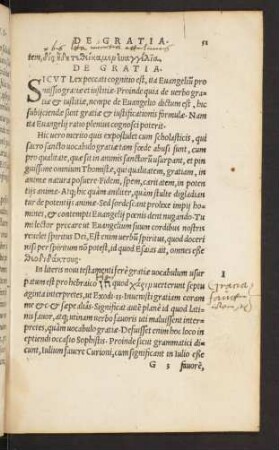 DE GRATIA. 51
DE GRATIA.
SICVT Lex peccati cognitio est, ita Euangeliũ pro
missio gratiæ et iustitiæ. Proinde quia de uerbo gra
tiæ & iustitiæ, nempe de Euangelio dictum est, hic
subijciendæ sunt gratiæ & iustificationis formulæ. Nam
ita Euangelij ratio plenius cognosci poterit.
Hic uero merito quis expostulet cum scholasticis, qui
sacro sancto uocabulo gratiæ tam fœde abusi sunt, cum
pro qualitate, quæ sit in animis sanctorũ usurpant, et pin
guissime omnium Thomistæ, qui qualitatem, gratiam, in
animæ natura posuere. Fidem, spem, caritatem, in poten
tijs animæ. Atq; hic quàm aniliter, quàm stulte digladian
tur de potentijs animæ. Sed sordescant prolixe impij ho
mines, & contempti Euangelij pœnis dent nugando. Tu
mi lector precare ut Euangelium suum cordibus nostris
reuelet spiritus Dei, Est enim uerbũ spiritus, quod doceri
nisi per spiritum nõ potest, id quod Esaias ait, omnes esse
διοδιδάκτους.
In literis noui testamenti fere gratiæ uocabulum usur
patum est pro hebraico חן quod χάρις uerterunt septu
aginta interpretes, ut Exodi 33. Inuenisti gratiam coram
me &c & sæpe aliàs. Significat aũt planè id quod latinis
fauor, atq; utinam uerbo fauoris uti maluissent inter-
pretes, quàm uocabulo gratiæ. Defuisset enim hoc loco in
eptiendi occasio Sophistis. Proinde sicut grammatici di
cunt, Iulium fauere Curioni, cum significant in Iulio esse
G 3 fauorẽ,